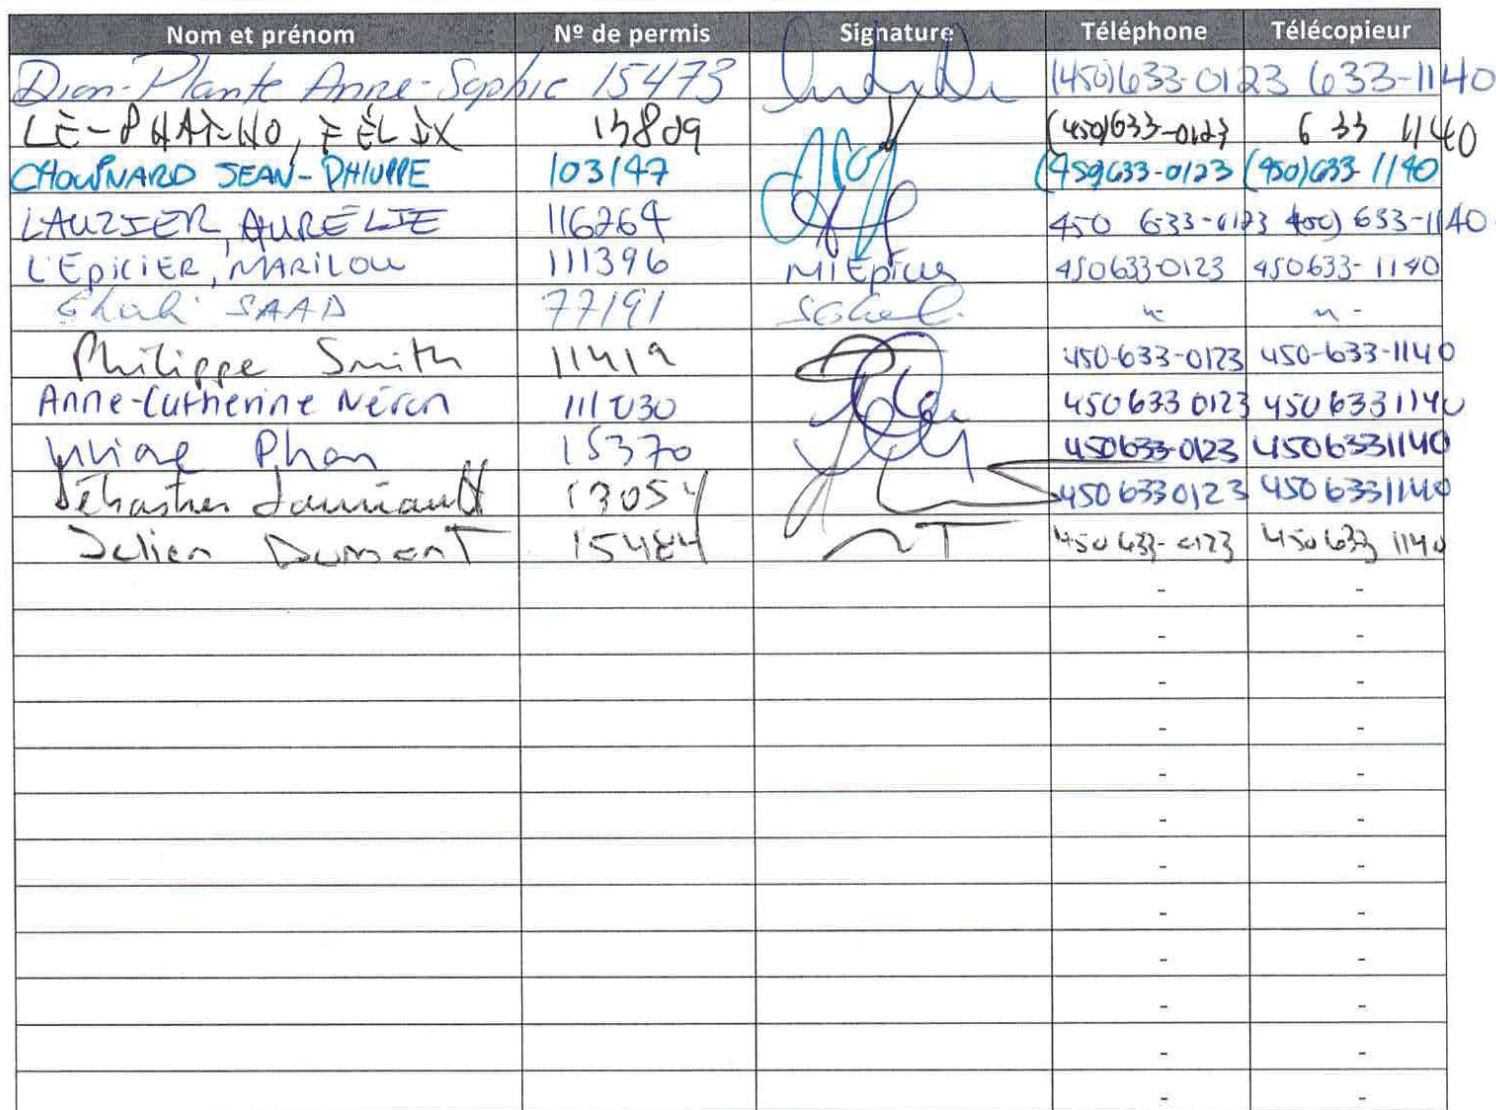 Nom et prénom Nº de permis Signature Téléphone Télécopieur
Dion-Plante Anne-Sophie 15473 (450)633-0123 633-1140
LÊ-PHAT-HO, FÉLIX 15809 (450)633-0123 633 1140
CHOUINARD JEAN-PHILIPPE 103147 (450)633-0123 (450)633-1140
LAUZIER, AURÉLIE 116264 450 633-0123 450) 633-1140
L'ÉPICIER, MARILOU 111396 450633-0123 450633-1140
SAAD 77191
Philippe Smith 11419 450-633-0123 450-633-1140
Anne-Catherine Néron 111030 450 633 0123 450 633 1140
Viviane Phan 15370 450633-0123 4506331140
Sébastien 13054 450 6330123 450 6331140
Julien Dumont 15484 450 633-0123 450 633 1140
- -
- -
- -
- -
- -
- -
- -
- -
- -
- -
- -
- -